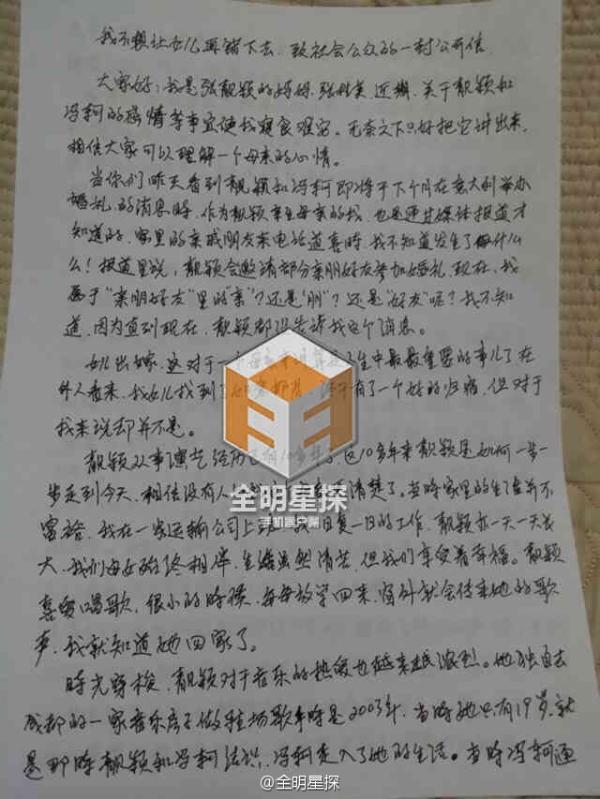 我不想让女儿再错下去、致社会公众的一封公开信
大家好：我是张靓颖的妈妈，张桂英，近期，关于靓颖和
冯轲的婚情等事宜使我寝食难安。无奈之下只好把它讲出来，
相信大家可以理解一个母亲的心情。
当你们昨天看到靓颖和冯轲即将于下个月在意大利举办
婚礼的消息时，作为靓颖亲生母亲的我，也是通过媒体报道才
知道的，家里的亲戚朋友来电话道喜时，我不知道发生了什么
么！报道里说，靓颖会邀请部分亲朋好友参加婚礼，现在，我
属于“亲朋好友”里的“亲”？还是“朋”？还是“好友”呢？我不知
道，因为直到现在，靓颖都没告诉我这个消息。
女儿出嫁，这对于一个母亲来说算是一生中最最重要的事儿了，在
外人看来，我女儿找到了 终于有了一个好的归宿，但对于
我来说却并不是。
靓颖从事演艺经历已有10多年了，这10多年来靓颖是如何一步一
步走到今天，相信没有人比我 清楚了。当时家里的生活并不
富裕，我在一家运输公司上班，我日复一日的工作，靓颖亦一天一天长
大，我们母女始终相伴，生活虽然清苦，但我们享受着幸福。靓颖
喜爱唱歌，很小的时候，每每放学回来，窗外就会传来她的歌
声，我就知道她回家了。
时光穿梭，靓颖对于音乐的热爱也越来越浓烈。她独自去
成都的一家音乐房子做驻场歌手时是2003年，当时她只有19岁，就
是那时靓颖和冯轲结识，冯轲走入了她的生活。当时冯轲通
全明星探
手机客户端
@全明星探